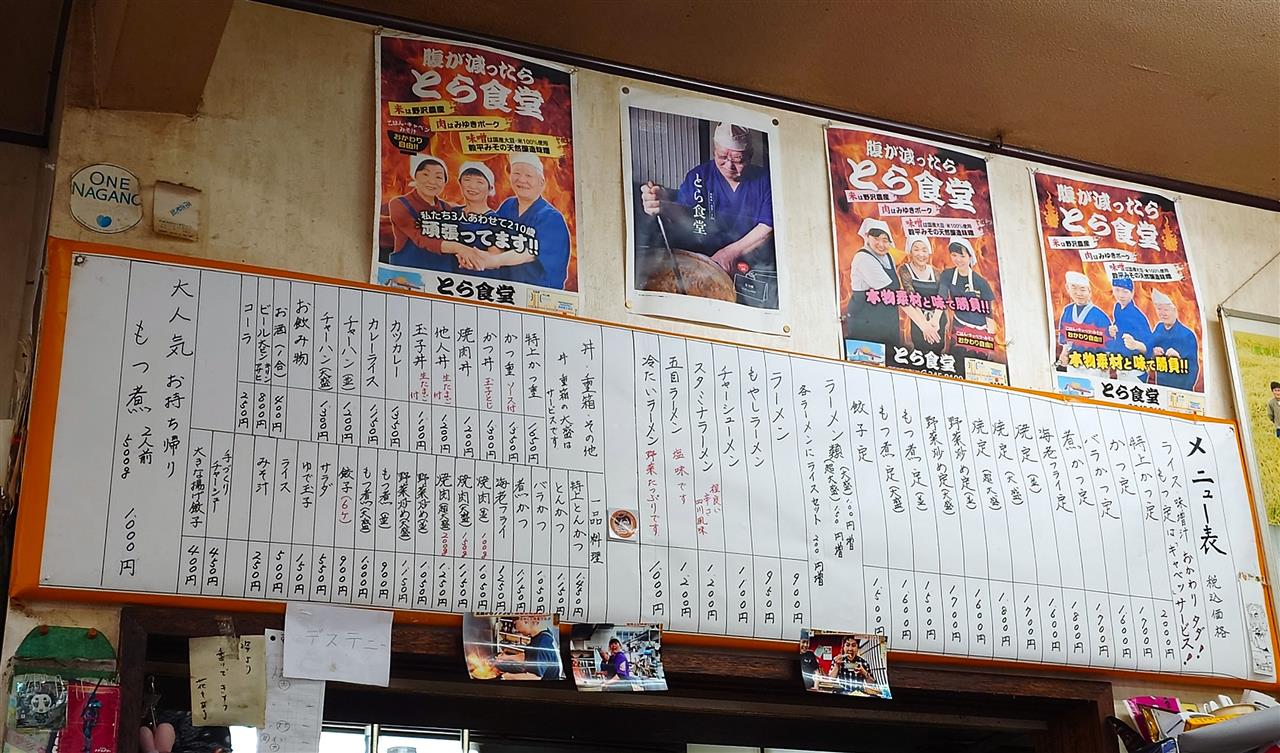 腹が減ったら
とら食堂
米は野沢農産
肉はみゆきポーク
ごはん・キャベツ
みそ汁
おかわり
自由!!
味噌は国産大豆・米100%使用
穀平みその天然醸造味噌
私たち3人あわせて210歳
頑張ってます!!
とら食堂
とら食堂
腹が減ったら
とら食堂
米は野沢農産
肉はみゆきポーク
味噌は国産大豆・米100%使用
穀平みその天然醸造味噌
本物素材と味で勝負!!
とら食堂
腹が減ったら
とら食堂
米は野沢農産
肉はみゆきポーク
味噌は国産大豆・米100%使用
穀平みその天然醸造味噌
ごはん・キャベツ・みそ汁
おかわり自由!!
本物素材と味で勝負!!
とら食堂
ONE
NAGANO
メニュー表 税込価格
ライス 味噌汁 おかわり タダ!
もつ定はキャベツサービス!!
特上かつ定 2000円
かつ定 1700円
バラかつ定 1600円
煮かつ定 1700円
海老フライ定 1800円
焼定(並) 1600円
焼定(大盛) 1800円
焼定(超大盛)
野菜炒め定(並)
野菜炒め定(大盛) 1700円
もつ煮定(並) 1500円
もつ煮定(大盛) 1600円
餃子定 1500円
ラーメン類(大盛)100円増
各ラーメンにライスセット 200円増
ラーメン 900円
もやしラーメン 950円
チャーシューメン
スタミナラーメン 程良い辛さ四川風味 1200円
五目ラーメン 塩味です 1200円
冷たいラーメン 野菜たっぷりです 1000円
丼・重箱・その他
丼・重箱の大盛は
サービスです
特上かつ重 1650円
かつ重 ソース付 1350円
かつ丼 玉子とじ 1300円
焼肉丼 1200円
他人丼 生たまご付
玉子丼 生たまご付 1100円
カツカレー
カツライス 1350円
チャーハン(並)
チャーハン(大盛) 1300円
お飲み物
お酒(一合) 400円
ビール 800円
コーラ 250円
一品料理
特上とんかつ 1450円
とんかつ 1150円
バラかつ 1050円
煮かつ 1150円
海老フライ 1250円
焼肉(並) 100g
焼肉(大盛) 150g 1150円
焼肉(超大盛) 200g 1250円
野菜炒め(並) 1050円
野菜炒め(大盛) 1150円
もつ煮(並) 900円
もつ煮(大盛) 1000円
餃子(6ケ) 900円
サラダ 550円
ゆで玉子 150円
ライス 500円
みそ汁 250円
手づくりチャーシュー 450円
大きな揚げ餃子 400円
大人気 お持ち帰り
もつ煮 2人前 500g 1000円
デスティニー